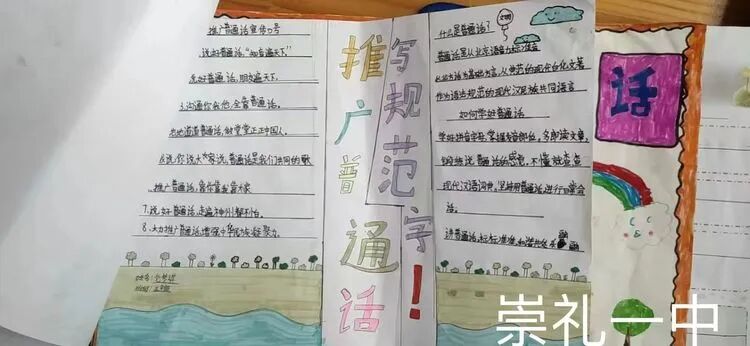 推广普通话宣传口号
1.说好普通话,"知音"遍天下
2.说好普通话,朋友遍天下。
3.沟通你我他,全靠普通话。
5.你说,我说,大家说,普通话是我们共同的歌
6.推广普通话,
7.说好普通话,走遍神州都不怕。
8.大力推广普通话,增强中华民族凝聚力。
姓名:
班级:
推广普通话
写规范字!
什么是普通话?
普通话是以北京语音为标准音
以北方话为基础方言,以典范的现代白话文著
作为语法规范的现代汉民族共同语言
如何学好普通话
学好拼音字母,掌握发音部位。多朗读文章,
现代汉语词典。坚持用普通话进行日常会
话。
讲普通话,
话
崇礼一中